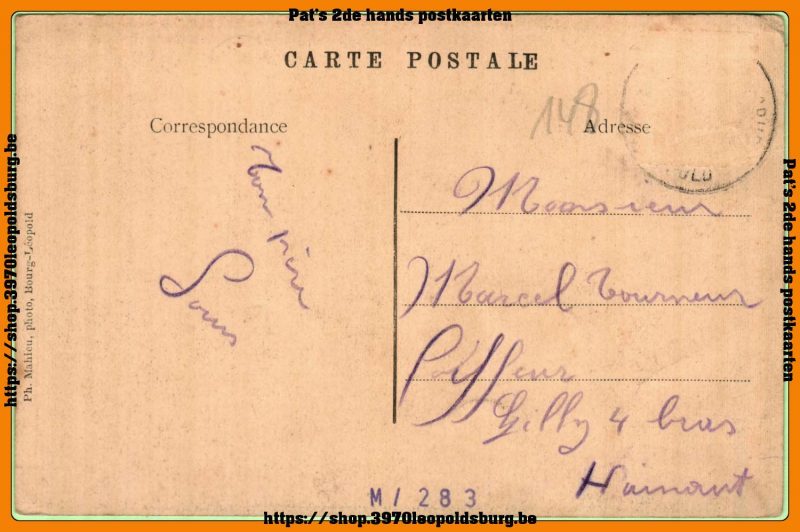 Pat's 2de hands postkaarten
CARTE POSTALE
148
Correspondance
Adresse
ton père
Louis
Monsieur
Marcel Tourneur
Coiffeur
Gilly 4 bras
Hainaut
M/283
Ph. Mahieu, photo, Bourg-Léopold
https://shop.3970leopoldsburg.be
Pat's 2de hands postkaarten
https://shop.3970leopoldsburg.be